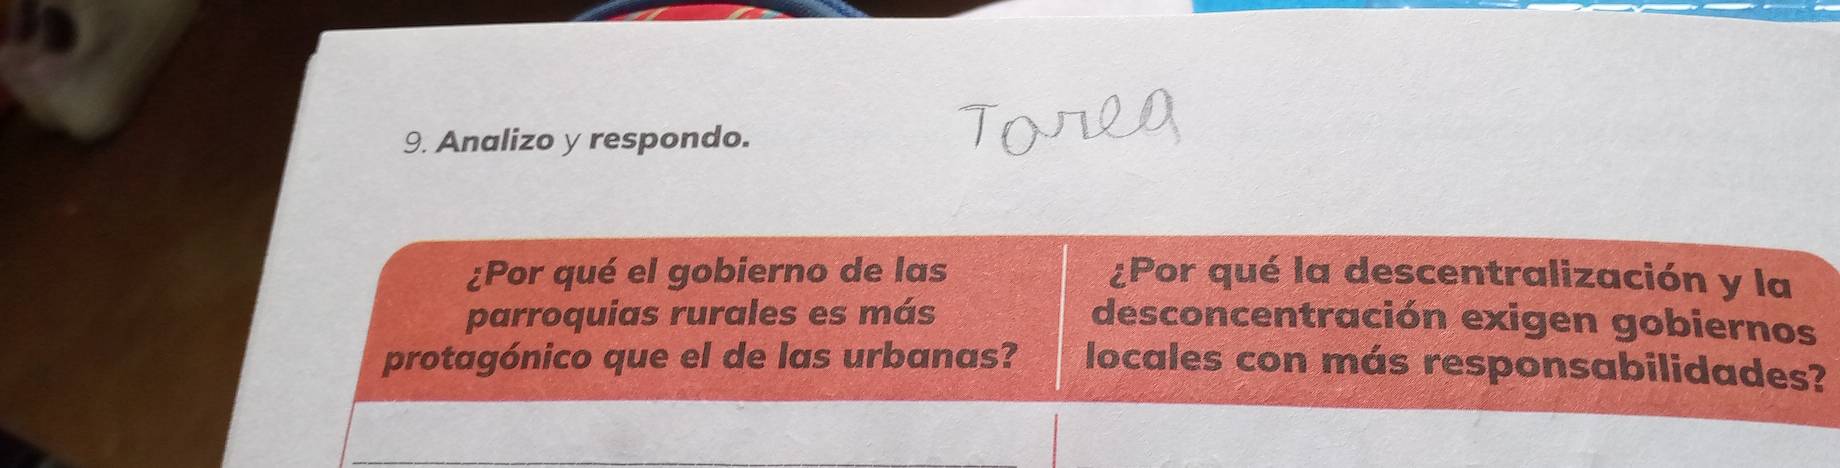 Tarea
9. Analizo y respondo.
¿Por qué el gobierno de las
parroquias rurales es más
protagónico que el de las urbanas?
¿Por qué la descentralización y la
desconcentración exigen gobiernos
locales con más responsabilidades?